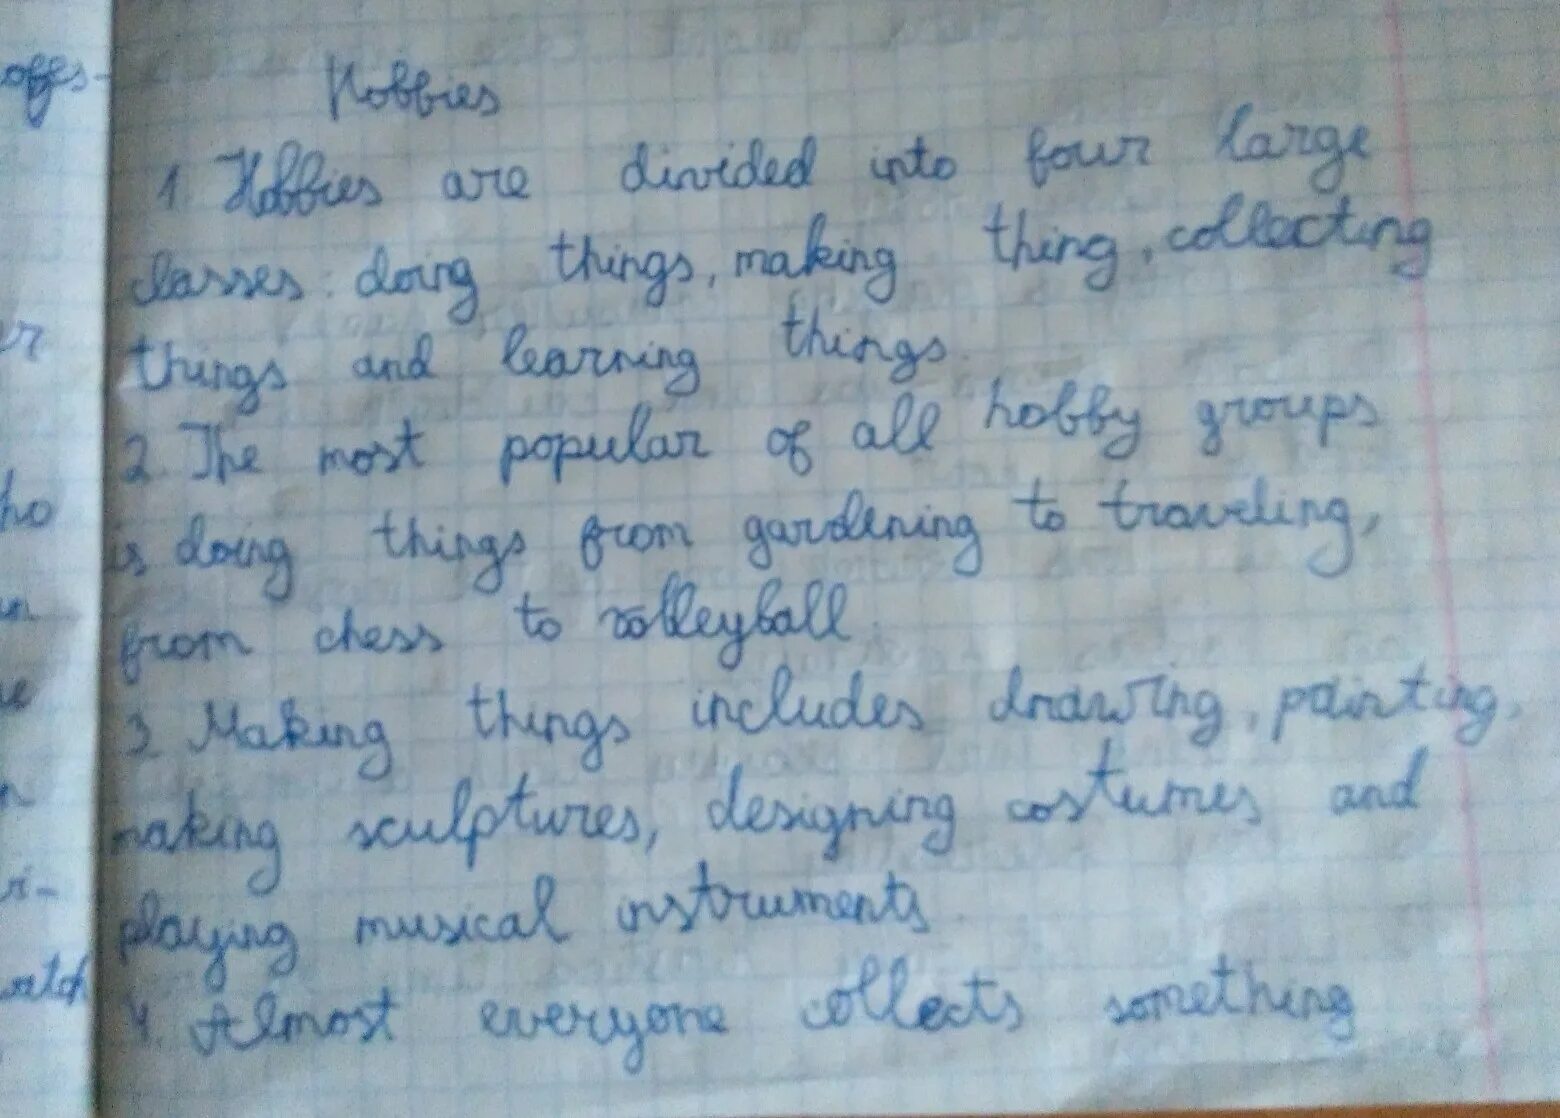 Hobbies
1. Hobbies are divided into four large
classes: doing things, making thing, collecting
things and learning things.
2. The most popular of all hobby groups
is doing things from gardening to traveling,
from chess to volleyball.
3. Making things includes drawing, painting,
making sculptures, designing costumes and
playing musical instruments.
4. Almost everyone collects something